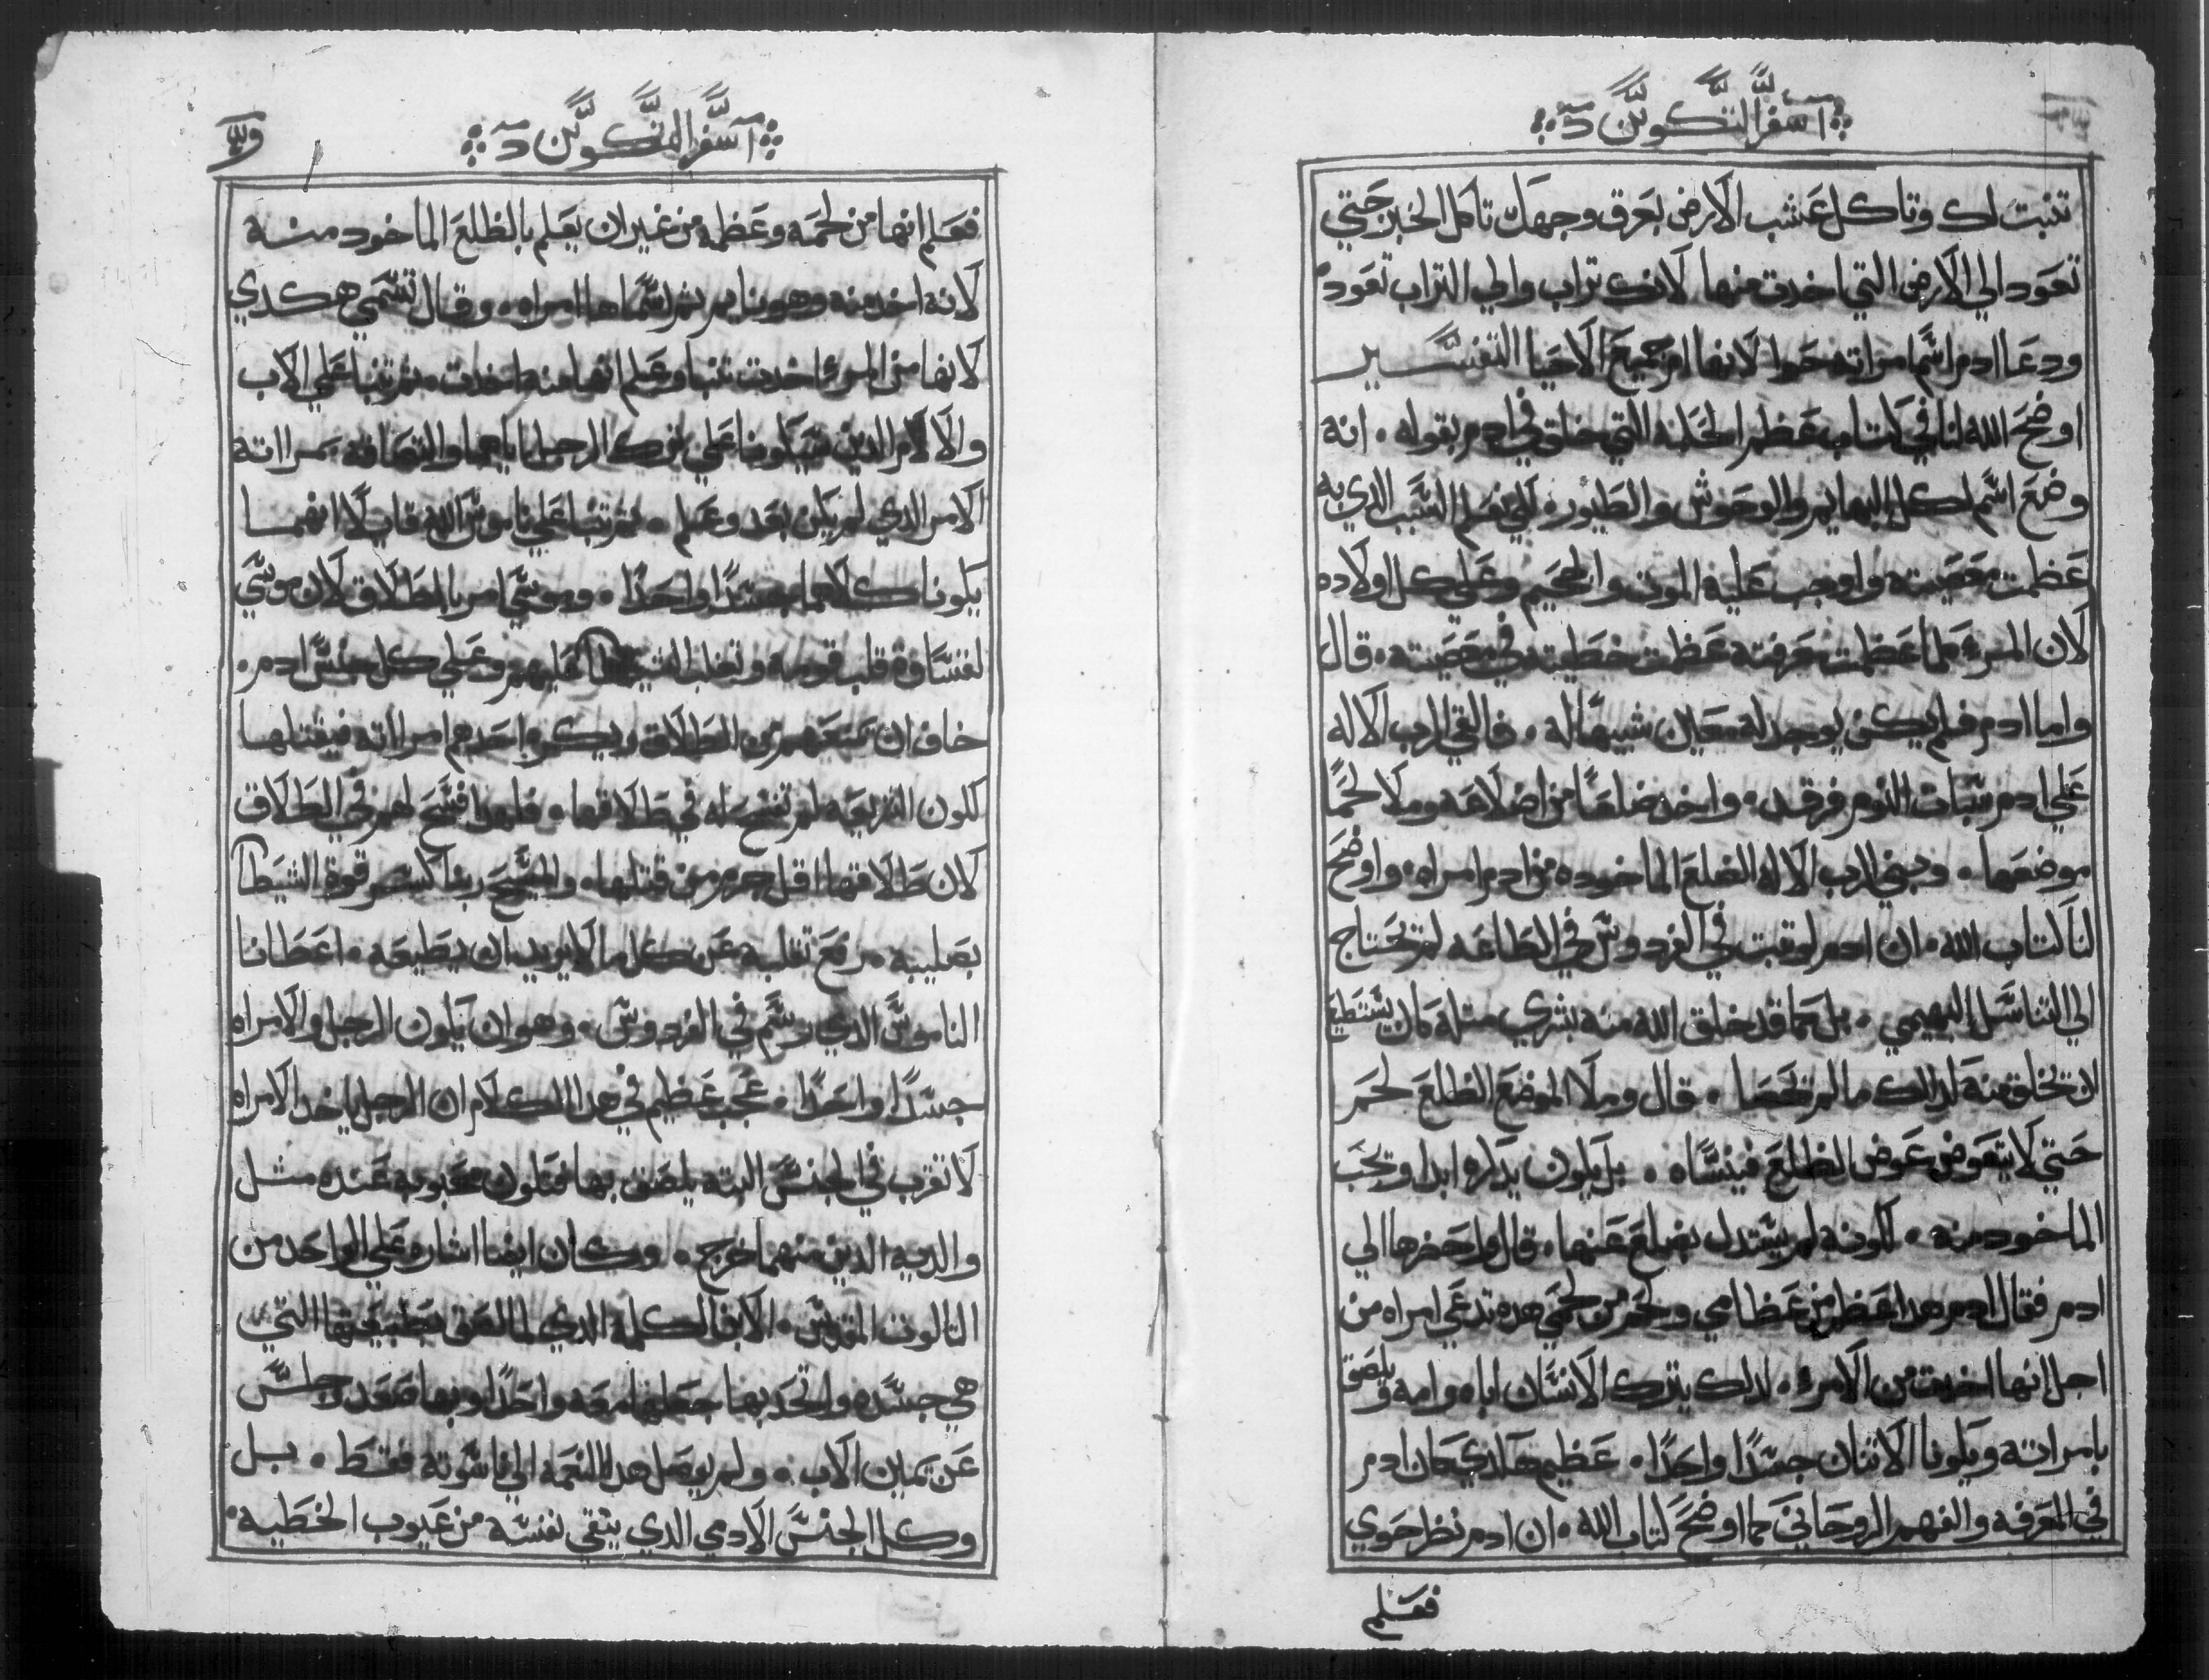 اسفر التكوين د
تنبت لك وتاكل عشب الارض بعرق وجهك تاكل الخبز حتي
تعود الي الارض التي اخدت منها لانك تراب والي التراب تعود
ودعا ادم اسم امراته حوا لانها ام جميع الاحيا التفسير
اوضح الله لنا في كتابه عظم الحكمه التي خلق في ادم بقوله انه
وضع اسم لكل البهايم والوحوش والطيور لكي نعلم السبب الدي به
عظمت معصيته واوجب عليه الموت والجحيم وعلي كل اولاده
لان المرء كلما عظمت معرفته عظمت خطيته في معصيته قال
واما ادم فلم يكن يوجد له معين شبيها له فالقي الرب الاله
علي ادم سبات النوم فرقد واخد ضلعا من اضلاعه وملا لحما
موضعها وبني الرب الاله الضلع الماخوده من ادم امراه واوضح
لنا كتاب الله ان ادم لو ثبت في الفردوس في الطاعه لم تحتاج
الي التناسل البهيمي بل كما قد خلق الله منه بشري مثله كان يستطيع
ان تخلق منه لدلك ما لم تحصا قال وملا الموضع الظلع لحم
حتي لا يتعوض عوض الظلع فينساه بل يكون يدكره ابدا وتحب
الماخود منه لكونه لم يستدل بضلع عنها قال واحضرها الي
ادم فقال ادم هدا عظم من عظامي ولحم من لحمي هده تدعي امراه من
اجل انها اخدت من الامرء لدلك يترك الانسان اباه وامه ويلصق
بامراته ويكونا الاتنان جسدا واحدا عظيم هادي كان ادم
في المعرفه والفهم الروحاني كما اوضح كتاب الله ان ادم نظر حوي
فعلم
اسفر التكوين د
فعلم انها من لحمه وعظمه من غير ان يعلم بالظلع الماخود منه
لانه اخد منه وهو نايم ثم اسماها امراه وقال تسمي هكدي
لانها من المرء اخدت تنبا وعلم انها منه اخدت ثم تنبا علي الاب
والام الدين يكونا علي ترك الرجل اياهما والتصاقه بمراته
الامر الدي لم يكن بعد وعلم ثم تنبا علي ناموس الله قايلا انهما
يكونا كلاهما جسدا واحدا وموسي امر بالطلاق لان موسي
لقساوة قلب قومه وتغلب الشيطان عليهم وعلي كل جنس ادم
خاف ان يمنعهم من الطلاق ويكره احدهم امراته فيقتلها
لكون الشريعه لم تفسح له في طلاقها فلهدا فسح لهم في الطلاق
لان طلاقها اقل جرم من قتلها والمسيح ربنا كسر قوة الشيطان
بصليبه رفع ثقلبه عن كل ما لا يريد ان يطيعه اعطانا
الناموس الدي رسم في الفردوس وهو ان يكون الرجل والامراه
جسدا واحدا عجب عظيم في هدا الكلام ان الرجل ياخد الامراه
لا تقرب في الجنس البته يلصق بها فتكون محبوبه عنده مثل
والديه الدين منهما خرج وكان ايضا اشاره علي الواحد من
التالوت المقدس الابن الكلمه الدي لما لصق بطبيعتنا التي
هي جسده واتحد بها جعلها معه واحدا وبها صعد وجلس
عن يمين الاب ولم يوصل هدا النعمه الي ناسوته فقط بل
وكل الجنس الادمي الدي ينقي نفسه من عيوب الخطيه